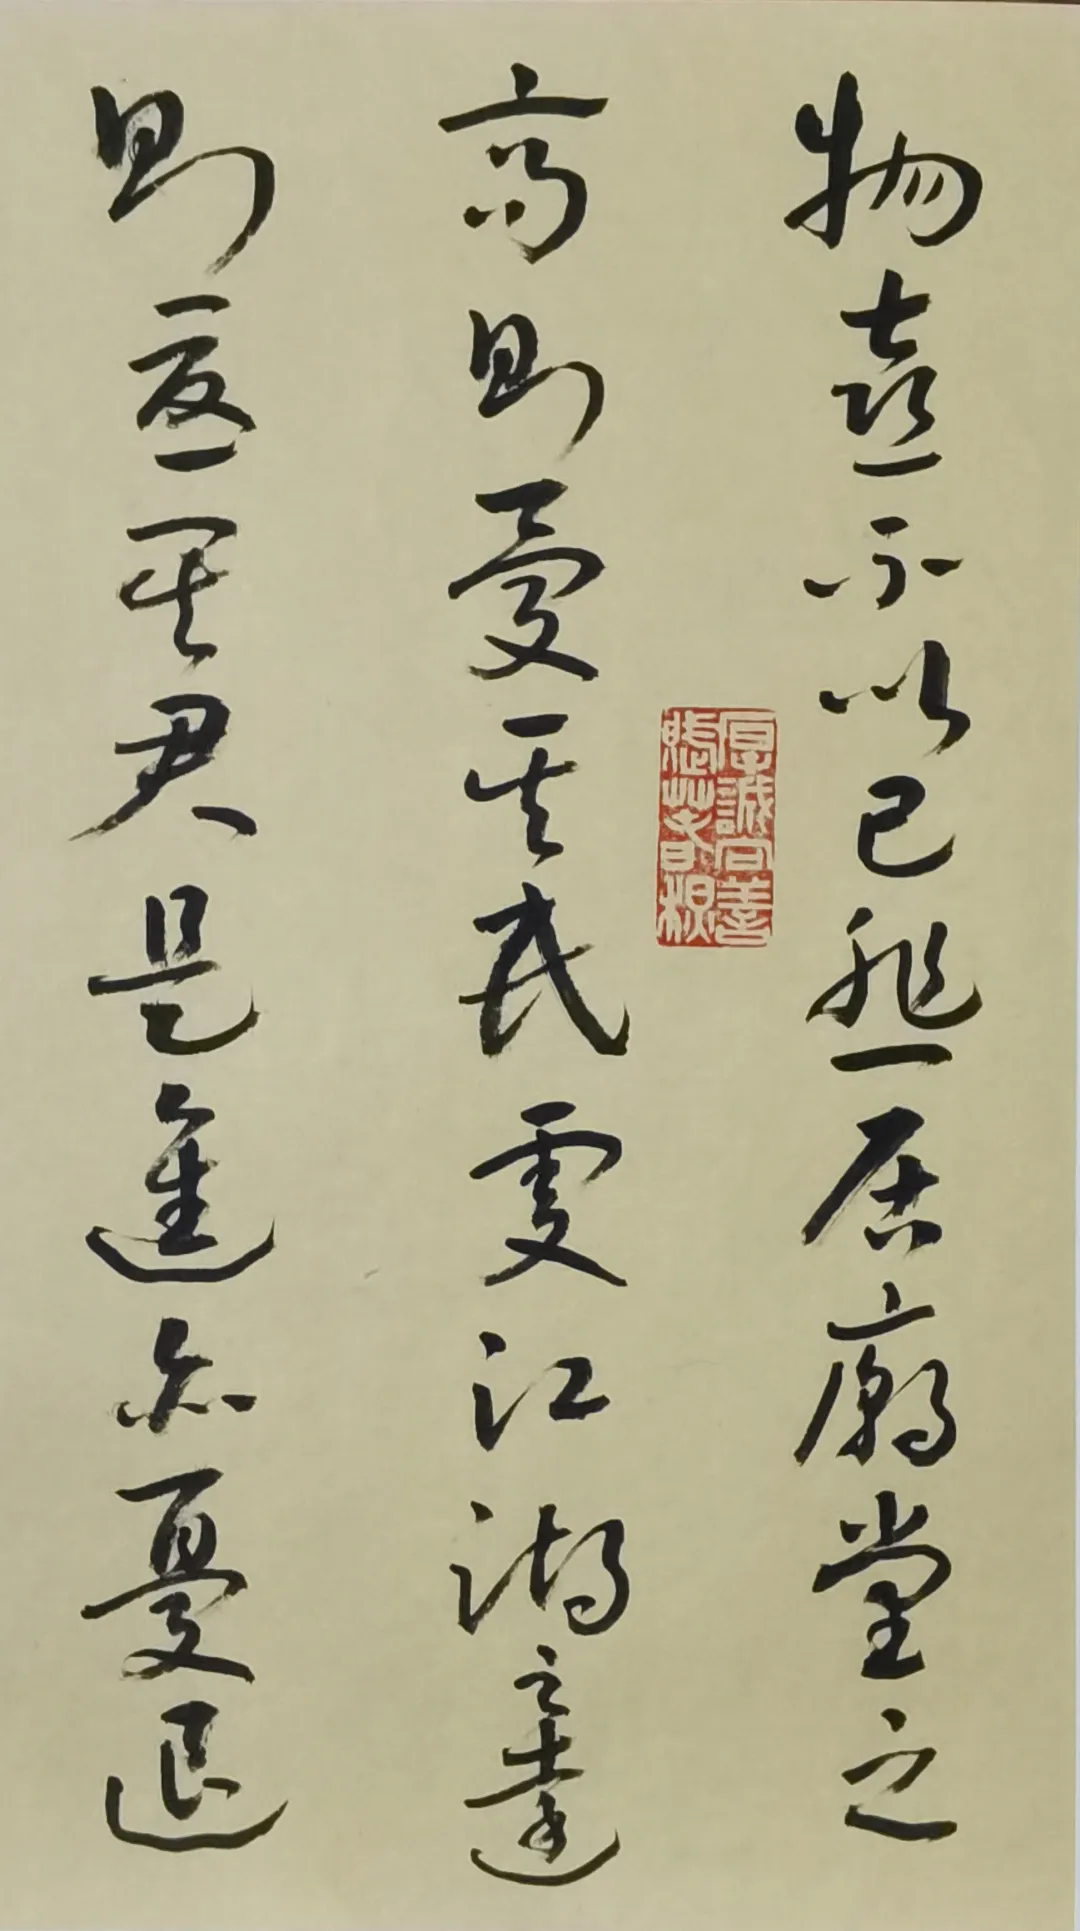 物喜不以己悲居廟堂之
高則憂其民處江湖之遠
則憂其君是進亦憂退
厚誠向善